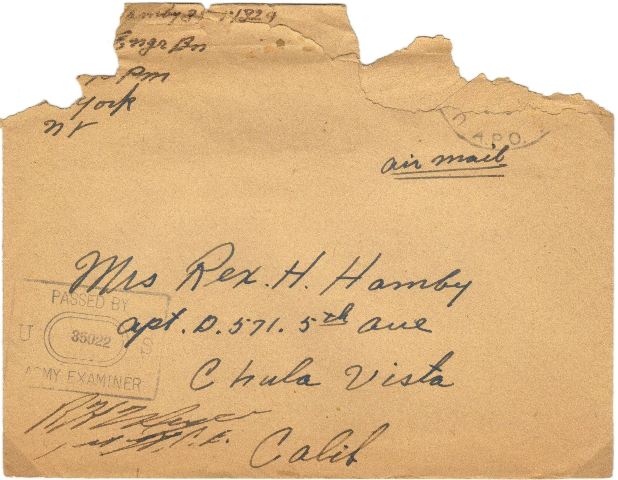 Hamby
Engr Bn
PM
York
NY
A.P.O.
air mail
Mrs Rex. H. Hamby
apt. D. 571. 5th ave
Chula Vista
Calif
PASSED BY
U 35022 S
ARMY EXAMINER